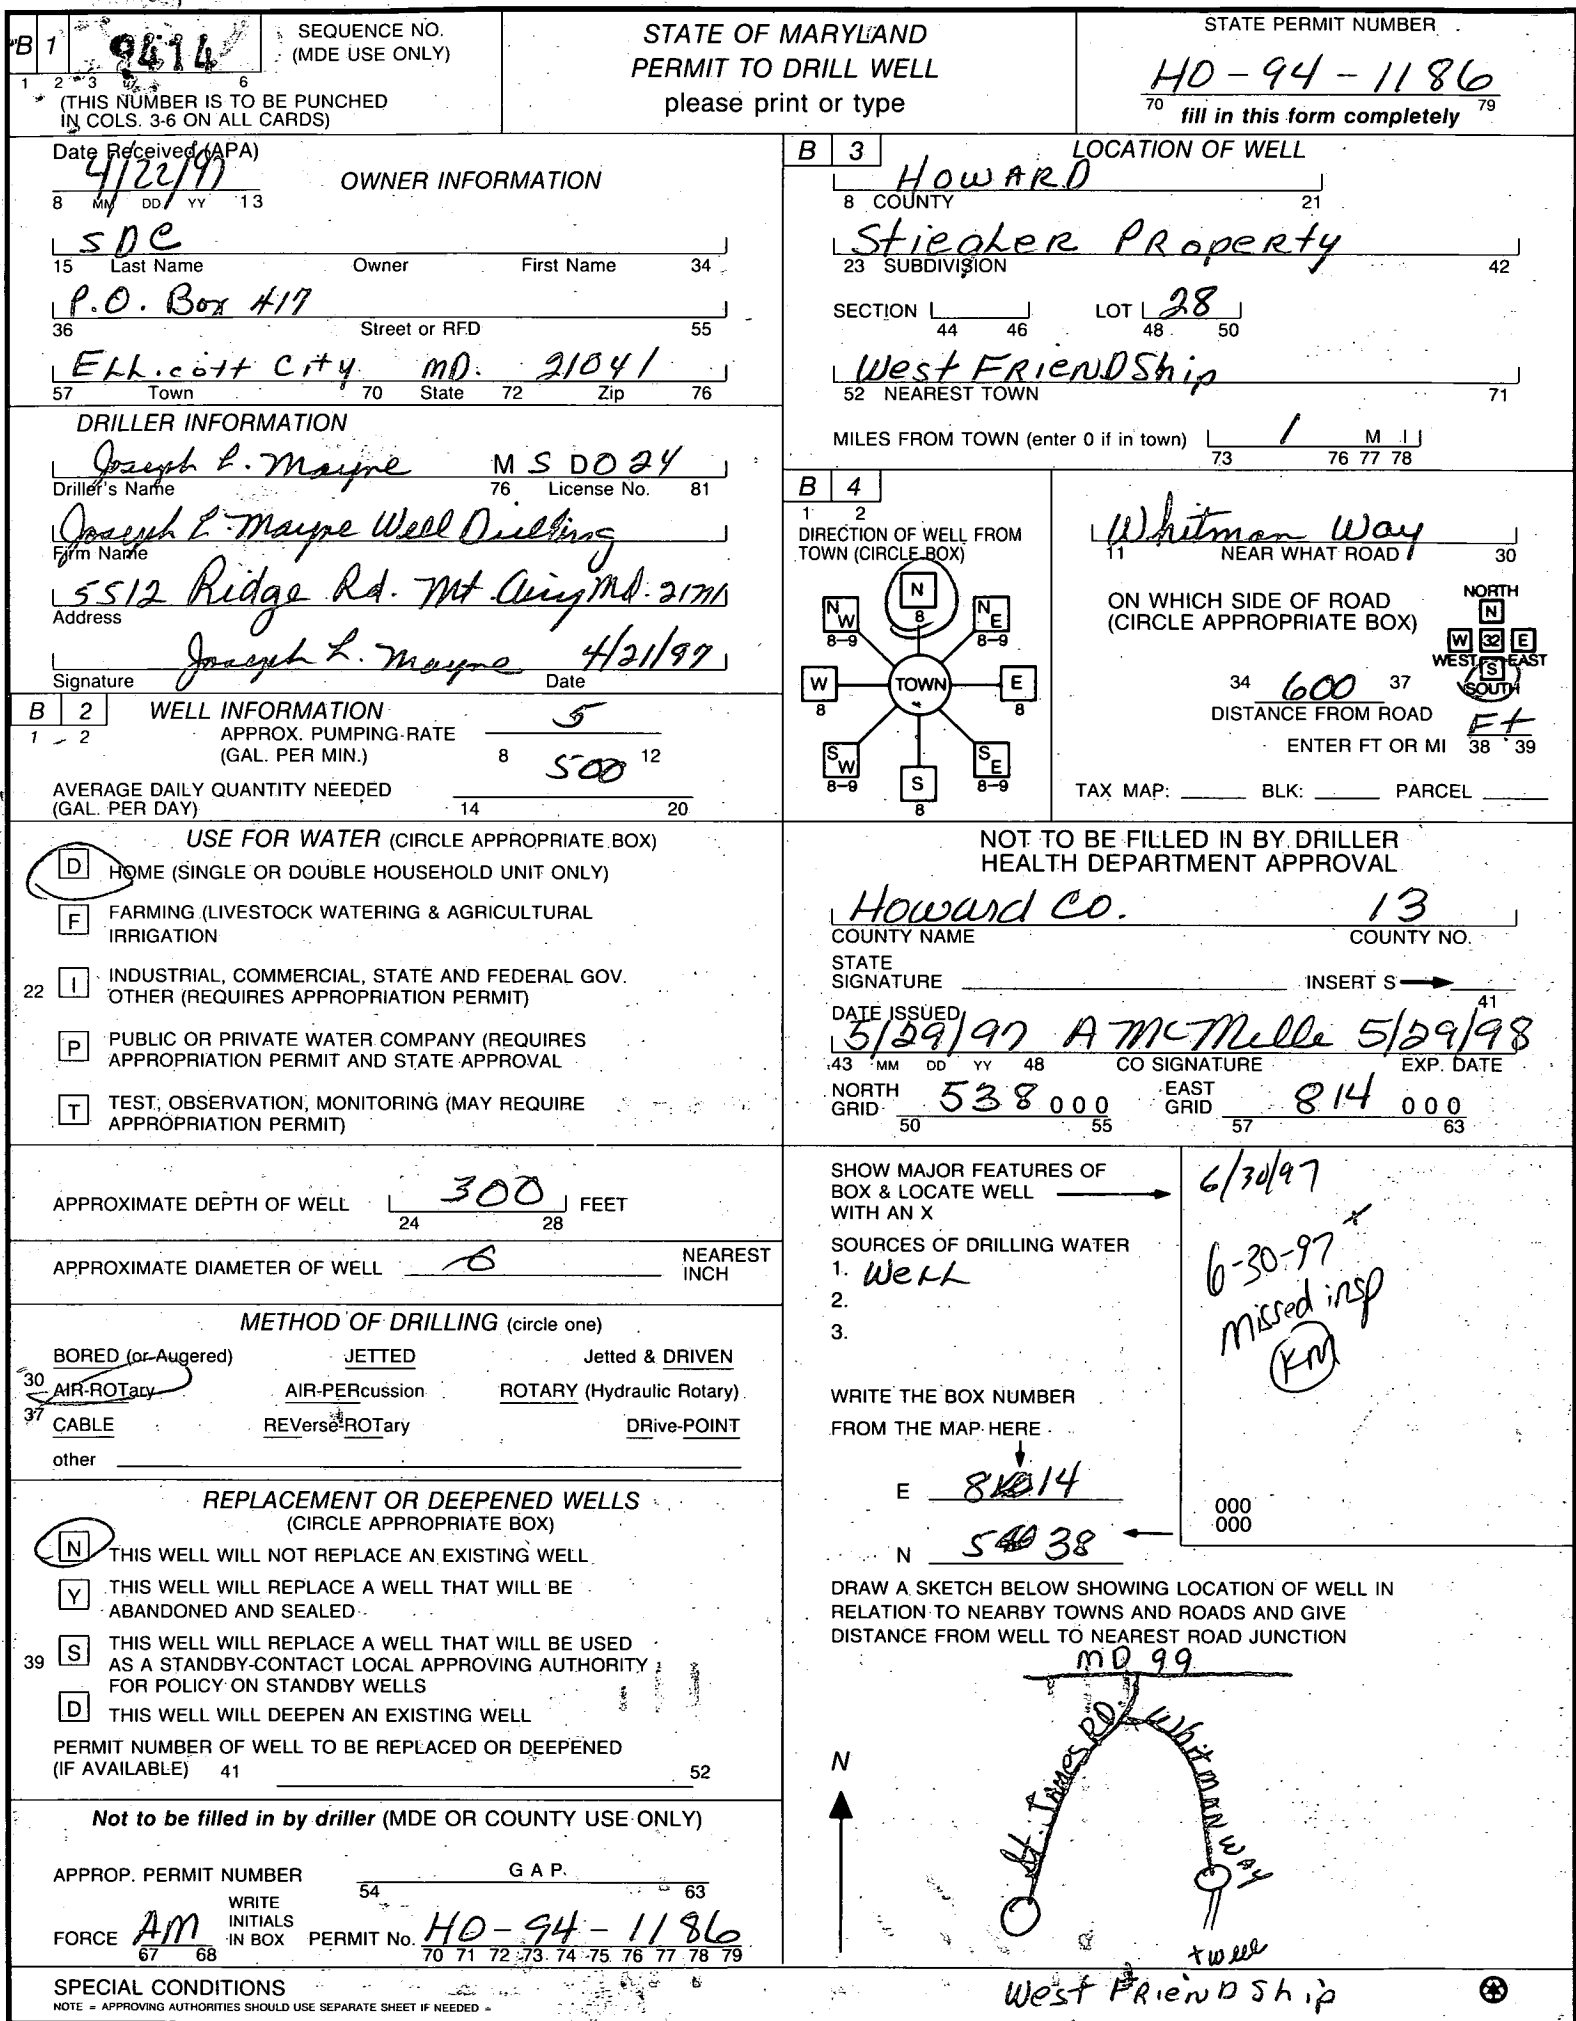 B 1 9414 SEQUENCE NO. (MDE USE ONLY)
1 2 3 6
(THIS NUMBER IS TO BE PUNCHED
IN COLS. 3-6 ON ALL CARDS)
STATE OF MARYLAND
PERMIT TO DRILL WELL
please print or type
STATE PERMIT NUMBER
HO-94-1186
70 fill in this form completely 79
Date Received (APA)
4/22/97
8 MM DD YY 13
OWNER INFORMATION
SDC
15 Last Name Owner First Name 34
P.O. Box 417
36 Street or RFD 55
ELLicott City MD. 21041
57 Town 70 State 72 Zip 76
DRILLER INFORMATION
Joseph L. Mayne MSD024
Driller's Name 76 License No. 81
Joseph L. Mayne Well Drilling
Firm Name
5512 Ridge Rd. Mt Airy Md. 21771
Address
Joseph L. Mayne 4/21/97
Signature Date
B 2 WELL INFORMATION
1 2
APPROX. PUMPING RATE 5
(GAL. PER MIN.) 8 12
AVERAGE DAILY QUANTITY NEEDED 500
(GAL. PER DAY) 14 20
USE FOR WATER (CIRCLE APPROPRIATE BOX)
D HOME (SINGLE OR DOUBLE HOUSEHOLD UNIT ONLY)
F FARMING (LIVESTOCK WATERING & AGRICULTURAL
IRRIGATION
22 I INDUSTRIAL, COMMERCIAL, STATE AND FEDERAL GOV.
OTHER (REQUIRES APPROPRIATION PERMIT)
P PUBLIC OR PRIVATE WATER COMPANY (REQUIRES
APPROPRIATION PERMIT AND STATE APPROVAL
T TEST, OBSERVATION, MONITORING (MAY REQUIRE
APPROPRIATION PERMIT)
APPROXIMATE DEPTH OF WELL 300 FEET
24 28
APPROXIMATE DIAMETER OF WELL 6 NEAREST
INCH
METHOD OF DRILLING (circle one)
BORED (or Augered) JETTED Jetted & DRIVEN
30 AIR-ROTary AIR-PERcussion ROTARY (Hydraulic Rotary)
37 CABLE REVerse-ROTary DRive-POINT
other
REPLACEMENT OR DEEPENED WELLS
(CIRCLE APPROPRIATE BOX)
N THIS WELL WILL NOT REPLACE AN EXISTING WELL
Y THIS WELL WILL REPLACE A WELL THAT WILL BE
ABANDONED AND SEALED
39 S THIS WELL WILL REPLACE A WELL THAT WILL BE USED
AS A STANDBY-CONTACT LOCAL APPROVING AUTHORITY
FOR POLICY ON STANDBY WELLS
D THIS WELL WILL DEEPEN AN EXISTING WELL
PERMIT NUMBER OF WELL TO BE REPLACED OR DEEPENED
(IF AVAILABLE) 41 52
Not to be filled in by driller (MDE OR COUNTY USE ONLY)
APPROP. PERMIT NUMBER G A P
54 63
FORCE AM WRITE INITIALS IN BOX PERMIT No. HO-94-1186
67 68 70 71 72 73 74 75 76 77 78 79
SPECIAL CONDITIONS
NOTE = APPROVING AUTHORITIES SHOULD USE SEPARATE SHEET IF NEEDED =
B 3 LOCATION OF WELL
HOWARD
8 COUNTY 21
StiegLER PRopeRty
23 SUBDIVISION 42
SECTION LOT 28
44 46 48 50
West FRIENDShip
52 NEAREST TOWN 71
MILES FROM TOWN (enter 0 if in town) 1 M I
73 76 77 78
B 4
1 2
DIRECTION OF WELL FROM
TOWN (CIRCLE BOX)
N 8
NW 8-9 NE 8-9
W 8 TOWN E 8
SW 8-9 SE 8-9
S 8
Whitman Way
11 NEAR WHAT ROAD 30
ON WHICH SIDE OF ROAD
(CIRCLE APPROPRIATE BOX)
NORTH
N
W 32 E
WEST S EAST
SOUTH
34 600 37
DISTANCE FROM ROAD
ENTER FT OR MI Ft
38 39
TAX MAP: BLK: PARCEL
NOT TO BE FILLED IN BY DRILLER
HEALTH DEPARTMENT APPROVAL
Howard Co. 13
COUNTY NAME COUNTY NO.
STATE
SIGNATURE INSERT S
41
DATE ISSUED
5/29/97 A McMille 5/29/98
43 MM DD YY 48 CO SIGNATURE EXP. DATE
NORTH GRID 538 000 EAST GRID 814 000
50 55 57 63
SHOW MAJOR FEATURES OF
BOX & LOCATE WELL
WITH AN X
SOURCES OF DRILLING WATER
1. WeLL
2.
3.
6/30/97
x
6-30-97
missed insp
KM
WRITE THE BOX NUMBER
FROM THE MAP HERE
E 814
N 538
000
000
DRAW A SKETCH BELOW SHOWING LOCATION OF WELL IN
RELATION TO NEARBY TOWNS AND ROADS AND GIVE
DISTANCE FROM WELL TO NEAREST ROAD JUNCTION
MD 99
St. James RD.
Whitman Way
N
x well
West FRIEND Ship